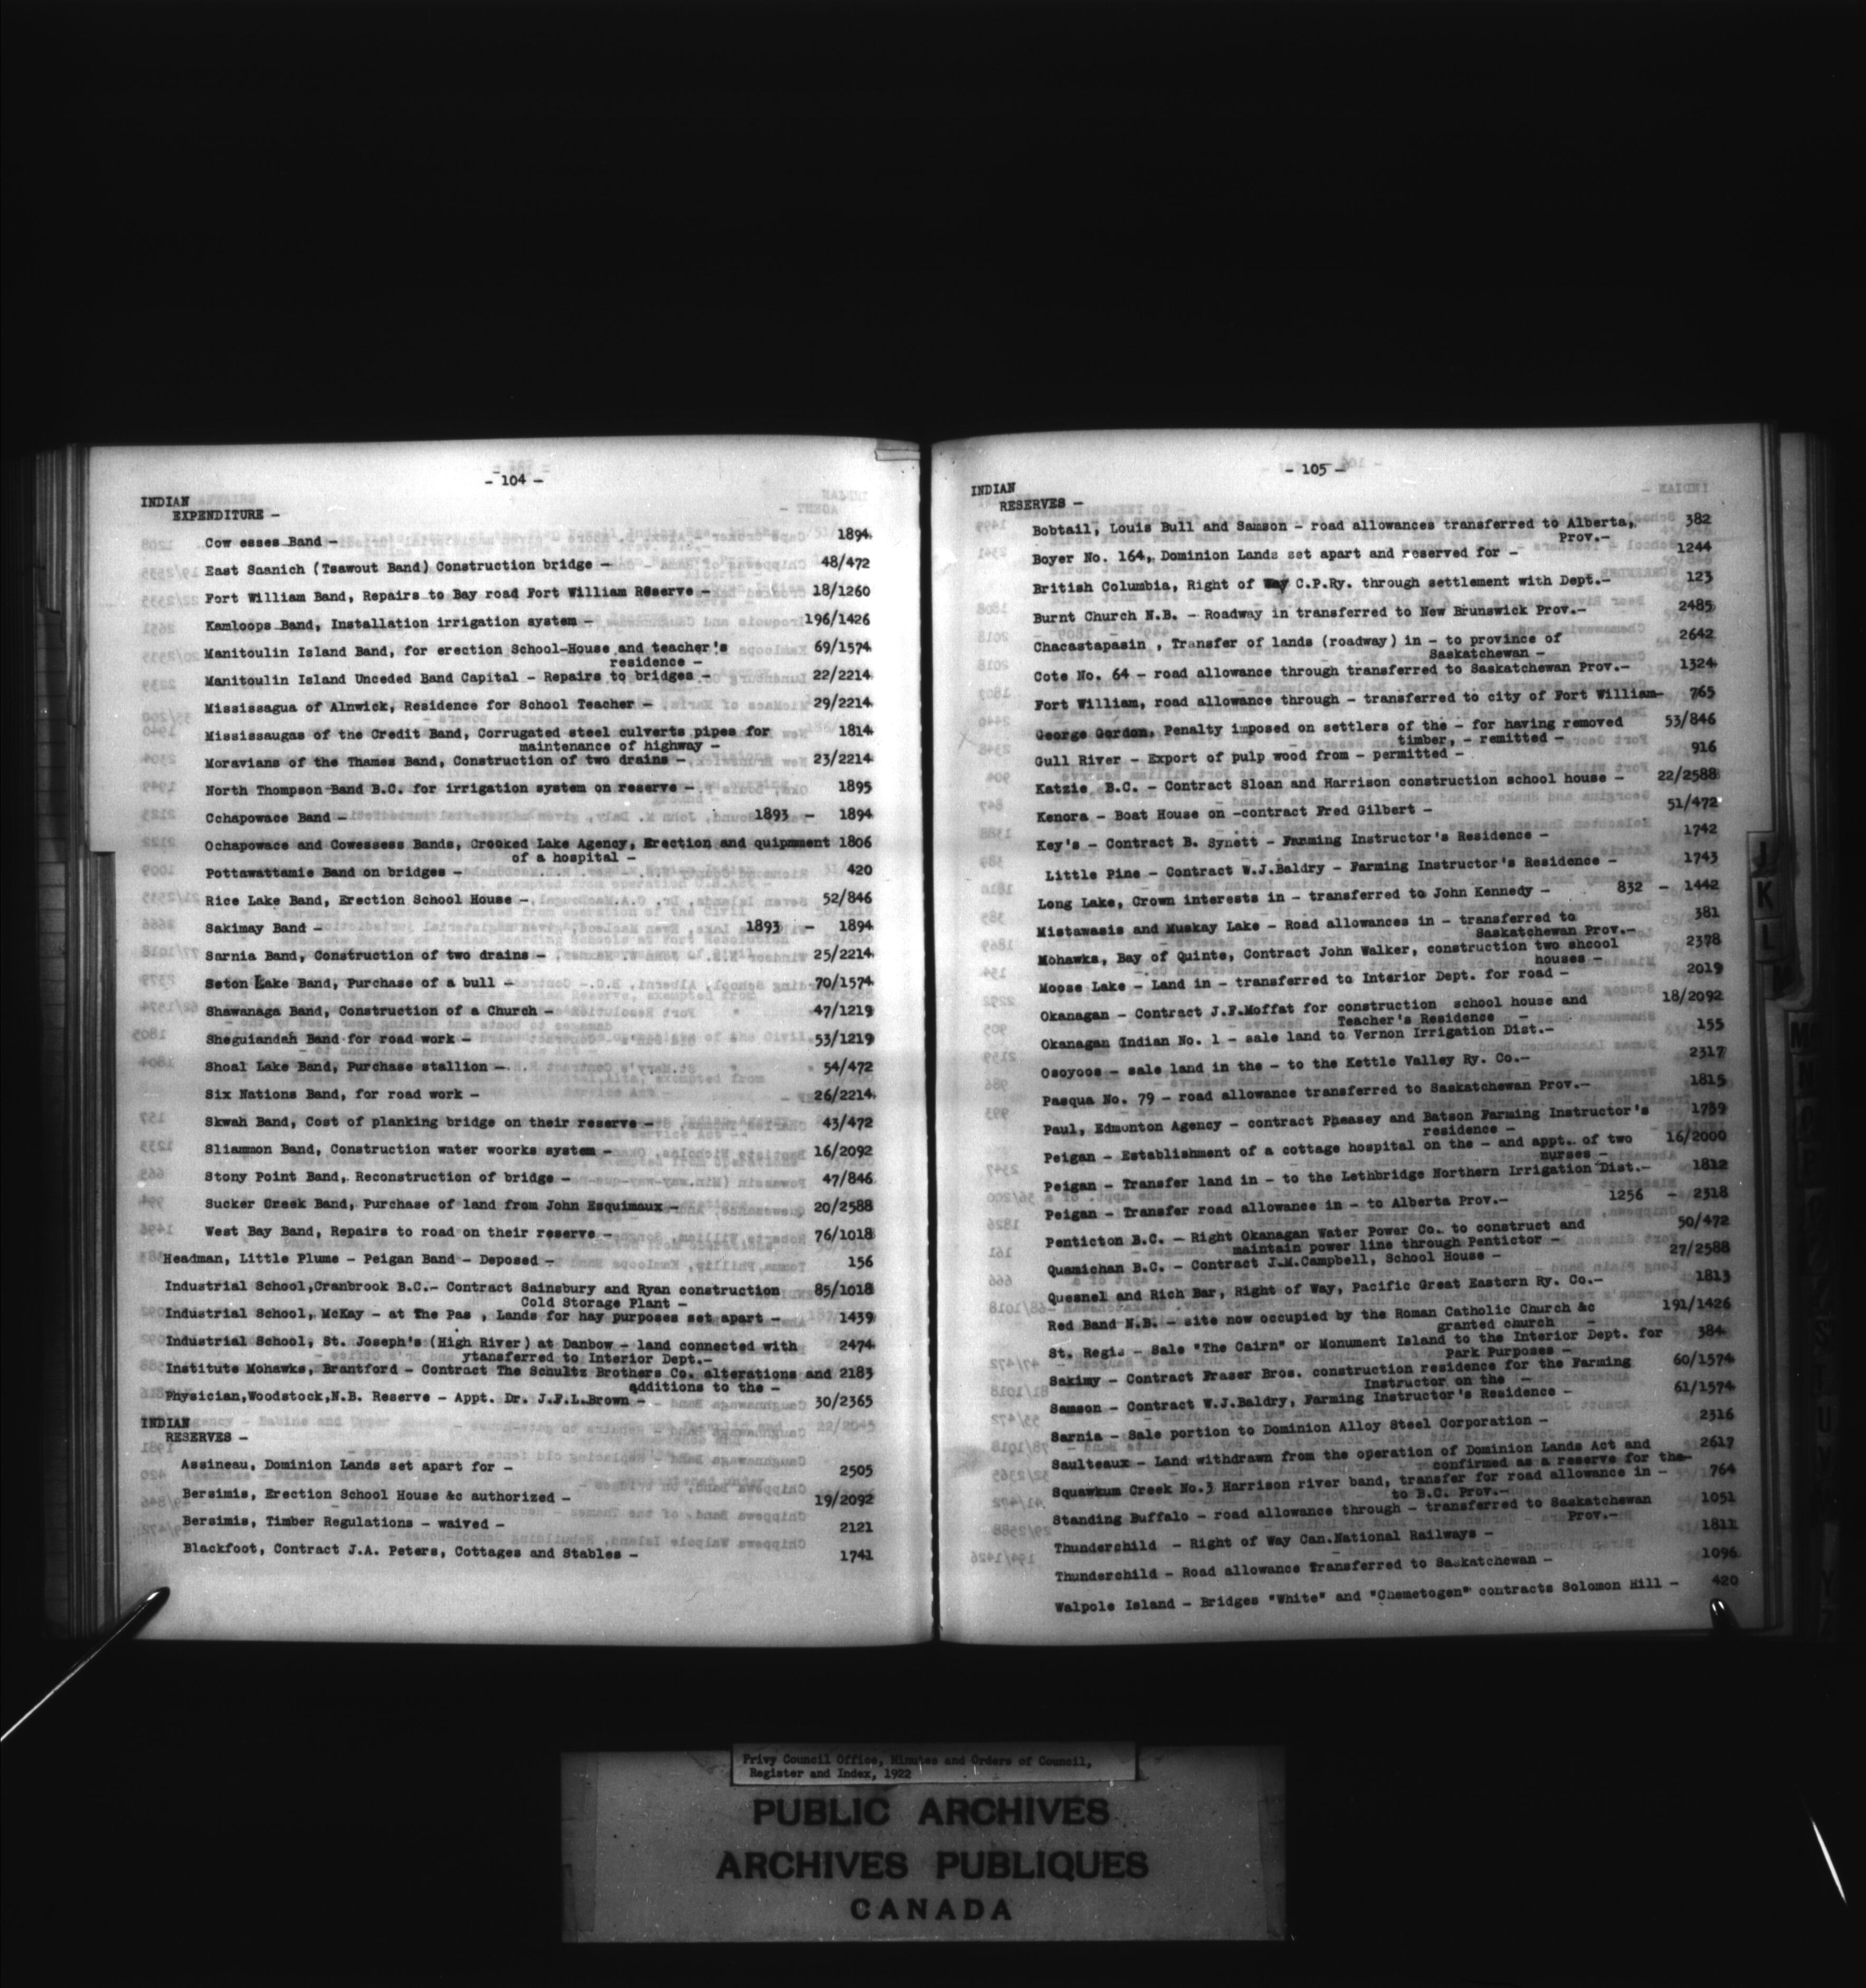 - 104 -
INDIAN
EXPENDITURE -
Cow esses Band - 1894
East Saanich (Tsawout Band) Construction bridge - 48/472
Fort William Band, Repairs to Bay road Fort William Reserve - 18/1260
Kamloops Band, Installation irrigation system - 196/1426
Manitoulin Island Band, for erection School-House and teacher's 69/1574
residence -
Manitoulin Island Unceded Band Capital - Repairs to bridges - 22/2214
Mississagua of Alnwick, Residence for School Teacher - 29/2214
Mississaugas of the Credit Band, Corrugated steel culverts pipes for 1814
maintenance of highway -
Moravians of the Thames Band, Construction of two drains - 23/2214
North Thompson Band B.C. for irrigation system on reserve - 1895
Cchapowace Band - 1893 - 1894
Ochapowace and Cowessess Bands, Crooked Lake Agency, Erection and quipmment 1806
of a hospital -
Pottawattamie Band on bridges - 420
Rice Lake Band, Erection School House - 52/846
Sakimay Band - 1893 - 1894
Sarnia Band, Construction of two drains - 25/2214
Seton Lake Band, Purchase of a bull - 70/1574
Shawanaga Band, Construction of a Church - 47/1219
Sheguiandah Band for road work - 53/1219
Shoal Lake Band, Purchase stallion - 54/472
Six Nations Band, for road work - 26/2214
Skwah Band, Cost of planking bridge on their reserve - 43/472
Sliammon Band, Construction water woorks system - 16/2092
Stony Point Band, Reconstruction of bridge - 47/846
Sucker Creek Band, Purchase of land from John Esquimaux - 20/2588
West Bay Band, Repairs to road on their reserve - 76/1018
Headman, Little Plume - Peigan Band - Deposed - 156
Industrial School,Cranbrook B.C.- Contract Sainsbury and Ryan construction 85/1018
Cold Storage Plant -
Industrial School, McKay - at The Pas , Lands for hay purposes set apart - 1439
Industrial School, St. Joseph's (High River) at Danbow - land connected with 2474
ytansferred to Interior Dept.-
Institute Mohawks, Brantford - Contract The Schultz Brothers Co. alterations and 2183
additions to the -
Physician,Woodstock,N.B. Reserve - Appt. Dr. J.F.L.Brown - 30/2365
INDIAN
RESERVES -
Assineau, Dominion Lands set apart for - 2505
Bersimis, Erection School House &c authorized - 19/2092
Bersimis, Timber Regulations - waived - 2121
Blackfoot, Contract J.A. Peters, Cottages and Stables - 1741
- 105 -
INDIAN
RESERVES -
Bobtail, Louis Bull and Samson - road allowances transferred to Alberta, 382
Prov.-
Boyer No. 164, Dominion Lands set apart and reserved for - 1244
British Columbia, Right of Way C.P.Ry. through settlement with Dept.- 123
Burnt Church N.B. - Roadway in transferred to New Brunswick Prov.- 2485
Chacastapasin , Transfer of lands (roadway) in - to province of 2642
Saskatchewan -
Cote No. 64 - road allowance through transferred to Saskatchewan Prov.- 1324
Fort William, road allowance through - transferred to city of Fort William- 765
George Gordon, Penalty imposed on settlers of the - for having removed 53/846
timber, - remitted -
Gull River - Export of pulp wood from - permitted - 916
Katzie B.C. - Contract Sloan and Harrison construction school house - 22/2588
Kenora - Boat House on -contract Fred Gilbert - 51/472
Key's - Contract B. Synett - Farming Instructor's Residence - 1742
Little Pine - Contract W.J.Baldry - Farming Instructor's Residence - 1743
Long Lake, Crown interests in - transferred to John Kennedy - 832 - 1442
Mistawasis and Muskay Lake - Road allowances in - transferred to 381
Saskatchewan Prov.-
Mohawks, Bay of Quinte, Contract John Walker, construction two shcool 2378
houses -
Moose Lake - Land in - transferred to Interior Dept. for road - 2019
Okanagan - Contract J.F.Moffat for construction school house and 18/2092
Teacher's Residence -
Okanagan Indian No. 1 - sale land to Vernon Irrigation Dist.- 155
Osoyoos - sale land in the - to the Kettle Valley Ry. Co.- 2317
Pasqua No. 79 - road allowance transferred to Saskatchewan Prov.- 1815
Paul, Edmonton Agency - contract Pheasey and Batson Farming Instructor's 1739
residence -
Peigan - Establishment of a cottage hospital on the - and appt. of two 16/2000
nurses -
Peigan - Transfer land in - to the Lethbridge Northern Irrigation Dist.- 1812
Peigan - Transfer road allowance in - to Alberta Prov.- 1256 - 2318
Penticton B.C. - Right Okanagan Water Power Co. to construct and 50/472
maintain power line through Pentictor -
Quamichan B.C. - Contract J.M.Campbell, School House - 27/2588
Quesnel and Rich Bar, Right of Way, Pacific Great Eastern Ry. Co.- 1813
Red Band N.B. - site now occupied by the Roman Catholic Church &c 191/1426
granted church -
St. Regis - Sale "The Cairn" or Monument Island to the Interior Dept. for 384
Park Purposes -
Sakimy - Contract Fraser Bros. construction residence for the Farming 60/1574
Instructor on the -
Samson - Contract W.J.Baldry, Farming Instructor's Residence - 61/1574
Sarnia - Sale portion to Dominion Alloy Steel Corporation - 2316
Saulteaux - Land withdrawn from the operation of Dominion Lands Act and 2617
confirmed as a reserve for the-
Squawkum Creek No.3 Harrison river band, transfer for road allowance in - 764
to B.C. Prov.-
Standing Buffalo - road allowance through - transferred to Saskatchewan 1051
Prov.-
Thunderchild - Right of Way Can.National Railways - 1811
Thunderchild - Road allowance Transferred to Saskatchewan - 1096
Walpole Island - Bridges "White" and "Chemetogen" contracts Solomon Hill - 420
J
K
L
M
Privy Council Office, Minutes and Orders of Council,
Register and Index, 1922
PUBLIC ARCHIVES
ARCHIVES PUBLIQUES
CANADA